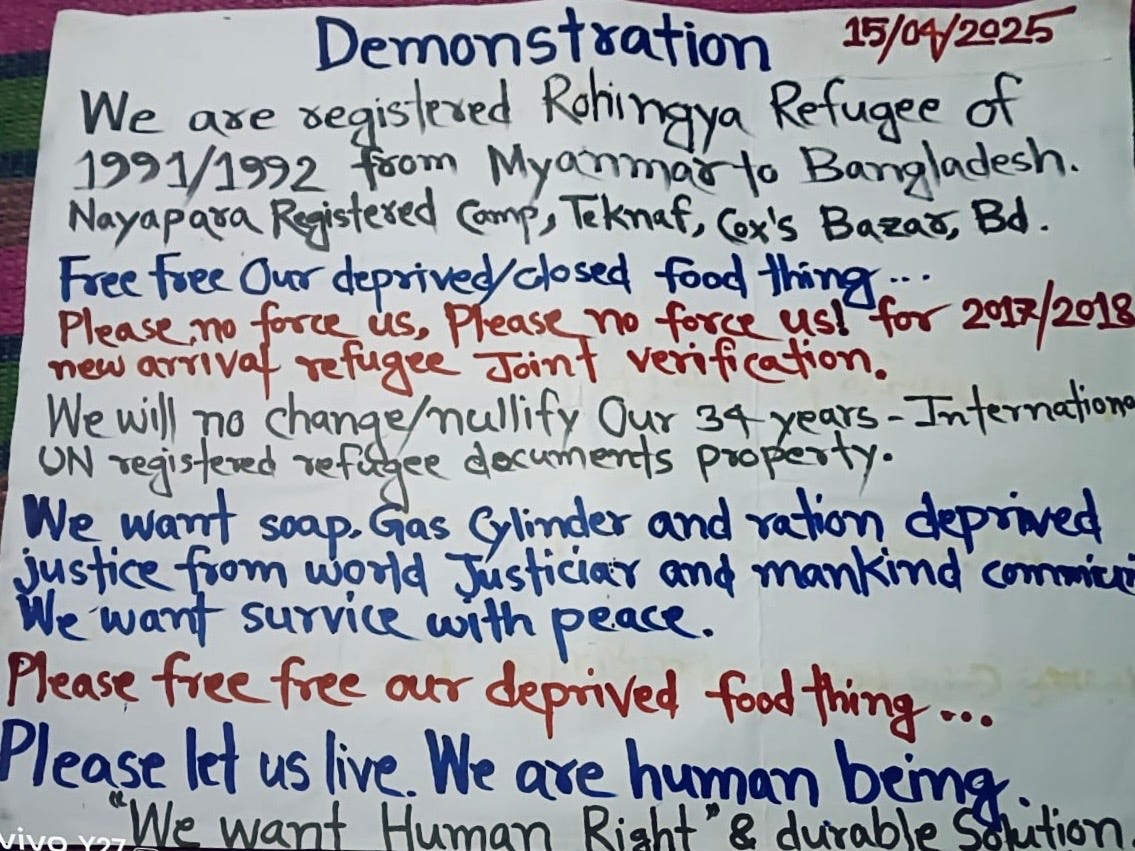 Demonstration 15/04/2025
We are registered Rohingya Refugee of
1991/1992 from Myanmar to Bangladesh.
Nayapara Registered Camp, Teknaf, Cox's Bazar, Bd.
Free free Our deprived/closed food thing...
Please, no force us, Please no force us! for 2017/2018
new arrival refugee Joint verification.
We will no change/nullify Our 34 years - Internationa
UN registered refugee documents property.
We want soap. Gas Cylinder and ration deprived
justice from world Justiciar and mankind
We want survice with peace.
Please free free our deprived food thing...
Please let us live. We are human being.
"We want Human Right" & durable Solution.
vivo Y27